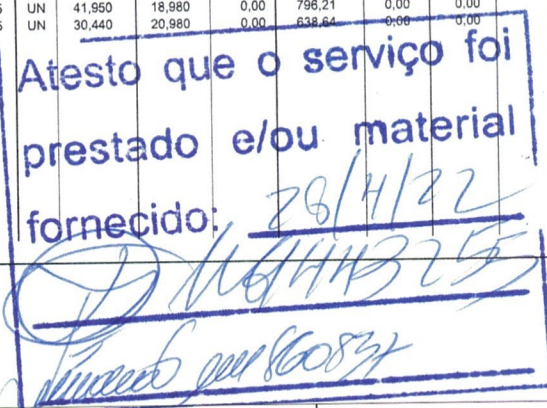 UN 41,950 18,980 0,00 796,21 0,00 0,00
UN 30,440 20,980 0,00 638,64 0,00 0,00
Atesto que o serviço foi
prestado e/ou material
fornecido: 28/4/22